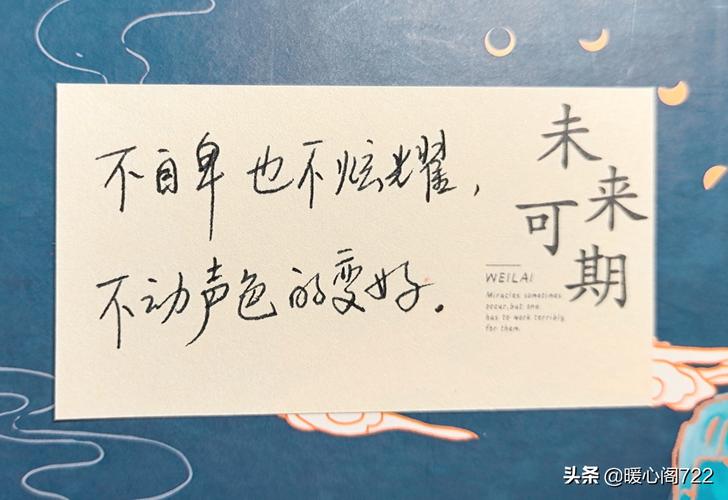 不自卑也不炫耀，
不动声色的变好。
未来
可期
WEILAI
Miracles sometimes
occur, but one
has to work terribly
for them.
头条 @暖心阁722